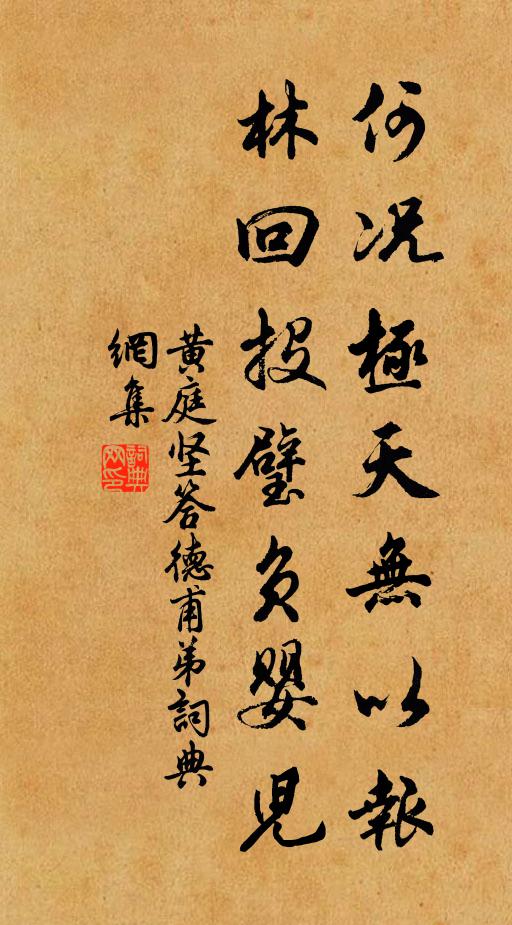 何况極天無以報
林回投璧負嬰児
黄庭坚答德甫弟詞典
網集
詞典
网印